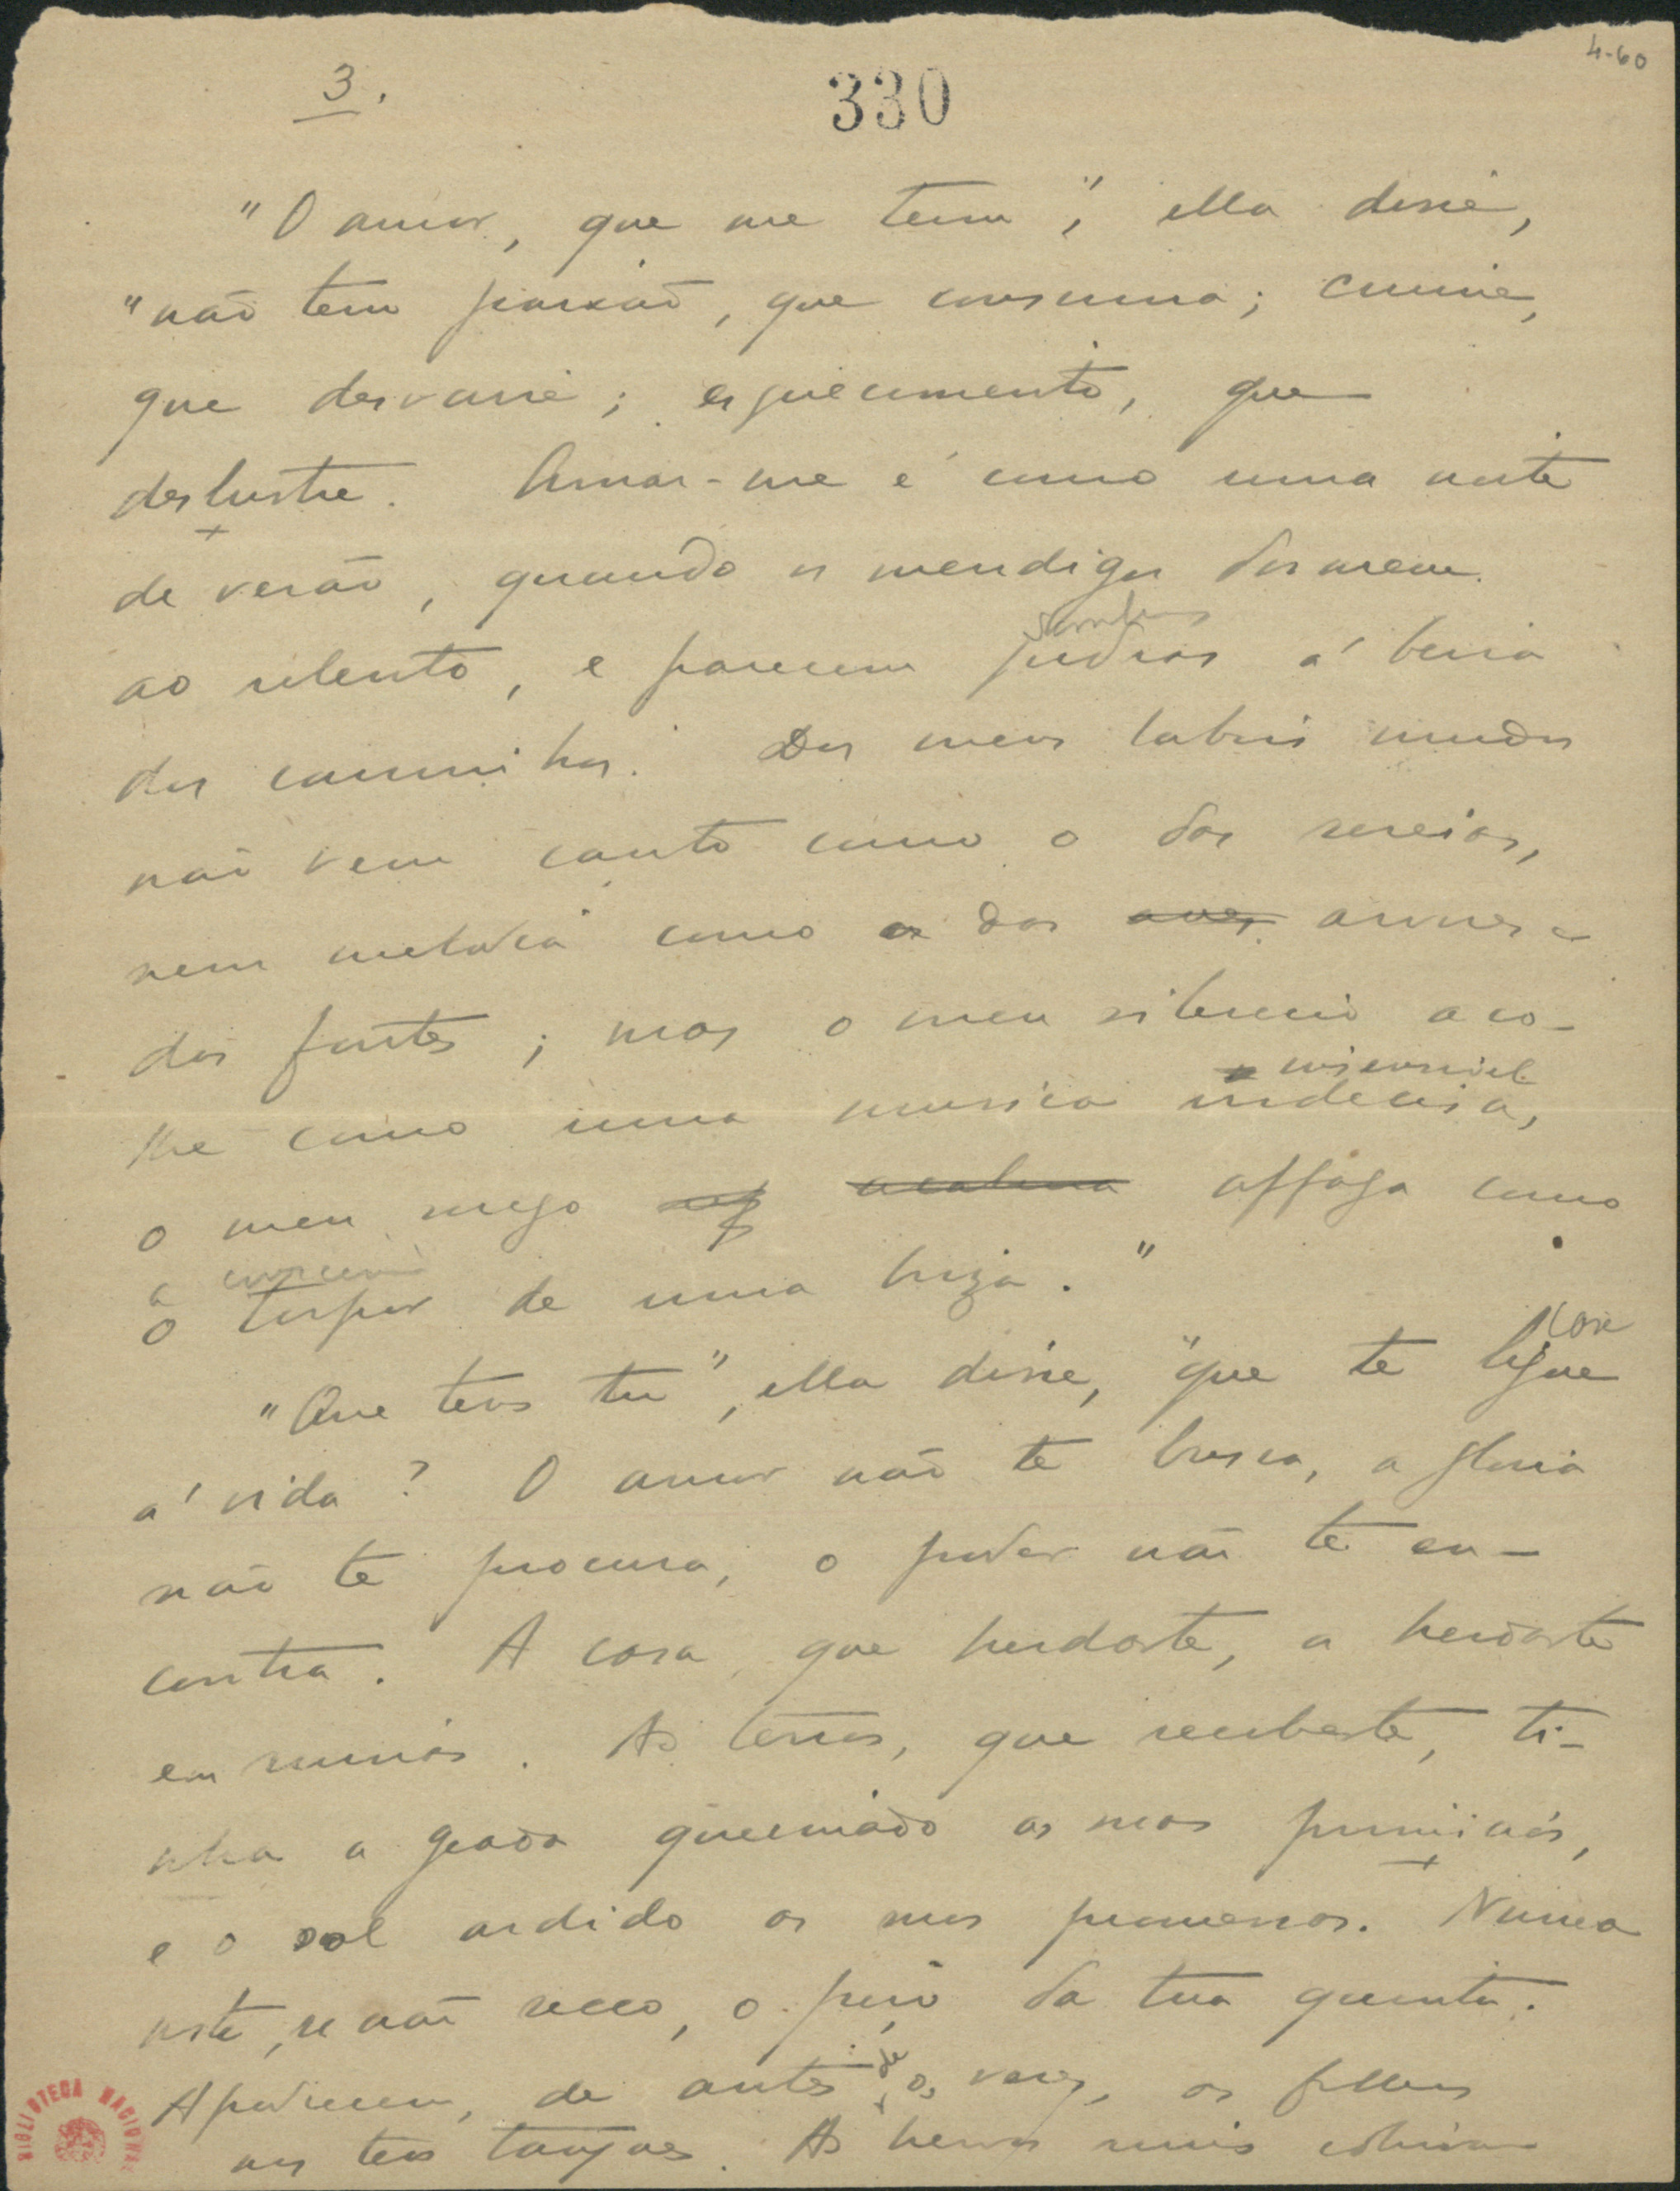 4-60
3.
330
"O amor, que me tem", ella disse,
"não tem paixão, que consuma; ciume,
que desvarie; esquecimento, que
deslustre. Amar-me é como uma noite
de verão, quando os mendigos dormem
sombras
ao relento, e parecem pedras á beira
dos caminhos. Dos meus labios mudos
não vem canto como o das sereias,
nem melodia como a das aves arvores e
das fontes; mas o meu silencio aco-
lhe como uma musica indecisa,
o meu socego acalma affaga como
a
o torpor de uma briza."
"Que tens tu", ella disse, "que te ligue
á vida? O amor não te busca, a gloria
não te procura, o poder não te en-
contra. A casa, que herdaste, a herdaste
em ruinas. As terras, que recebeste, ti-
nha a geada queimado as suas primicias,
e o sol ardido as suas promessas. Nunca
viste, se não secco, o poço da tua quinta.
Apodrecem, de antes de as veres, as folhas
nos teus tanques. As hervas más cobriram